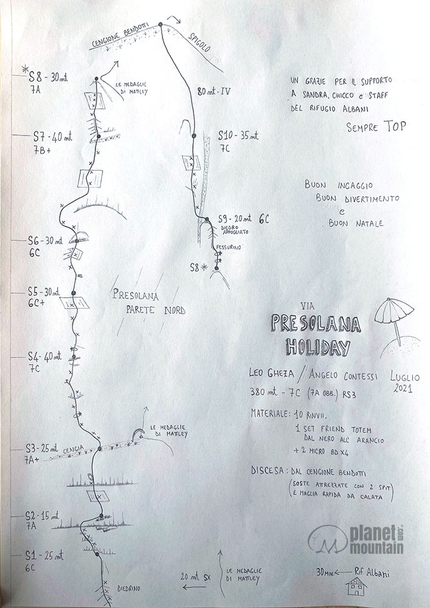 CENGIONE BENDOTTI
SPIGOLO
*S8 - 30 mt
7A
LE MEDAGLIE
DI MATLEY
80 mt - IV
S7 - 40 mt
7B+
S10 - 35 mt
7C
S9 - 20 mt 6C
DIEDRO
FESSURINO
S8 *
S6 - 30 mt
6C
S5 - 30 mt
6C+
PRESOLANA
PARETE NORD
S4 - 40 mt
7C
S3 - 25 mt
7A+
CENGIA
LE MEDAGLIE
DI MATLEY
S2 - 15 mt
7A
S1 - 25 mt
6C
DIEDRINO
20 mt SX
LE MEDAGLIE
DI MATLEY
UN GRAZIE PER IL SUPPORTO
A SANDRA, CHICCO E STAFF
DEL RIFUGIO ALBANI
SEMPRE TOP
BUON INGAGGIO
BUON DIVERTIMENTO
e
BUON NATALE
VIA
PRESOLANA
HOLIDAY
LEO GHEZA / ANGELO CONTESSI
LUGLIO
2021
380 mt - 7C (7A OBB.) RS3
MATERIALE: 10 RINVII,
1 SET FRIEND TOTEM
DAL NERO ALL' ARANCIO
+ 2 MICRO BD.X4
DISCESA: DAL CENGIONE BENDOTTI
(SOSTE ATTREZZATE CON 2 SPIT
E MAGLIA RAPIDA DA CALATA)
planet
mountain
.com
30min ← RIF ALBANI